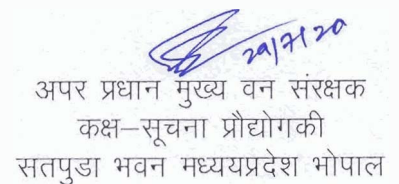 29/7/20
अपर प्रधान मुख्य वन संरक्षक
कक्ष–सूचना प्रौद्योगकी
सतपुडा भवन मध्ययप्रदेश भोपाल